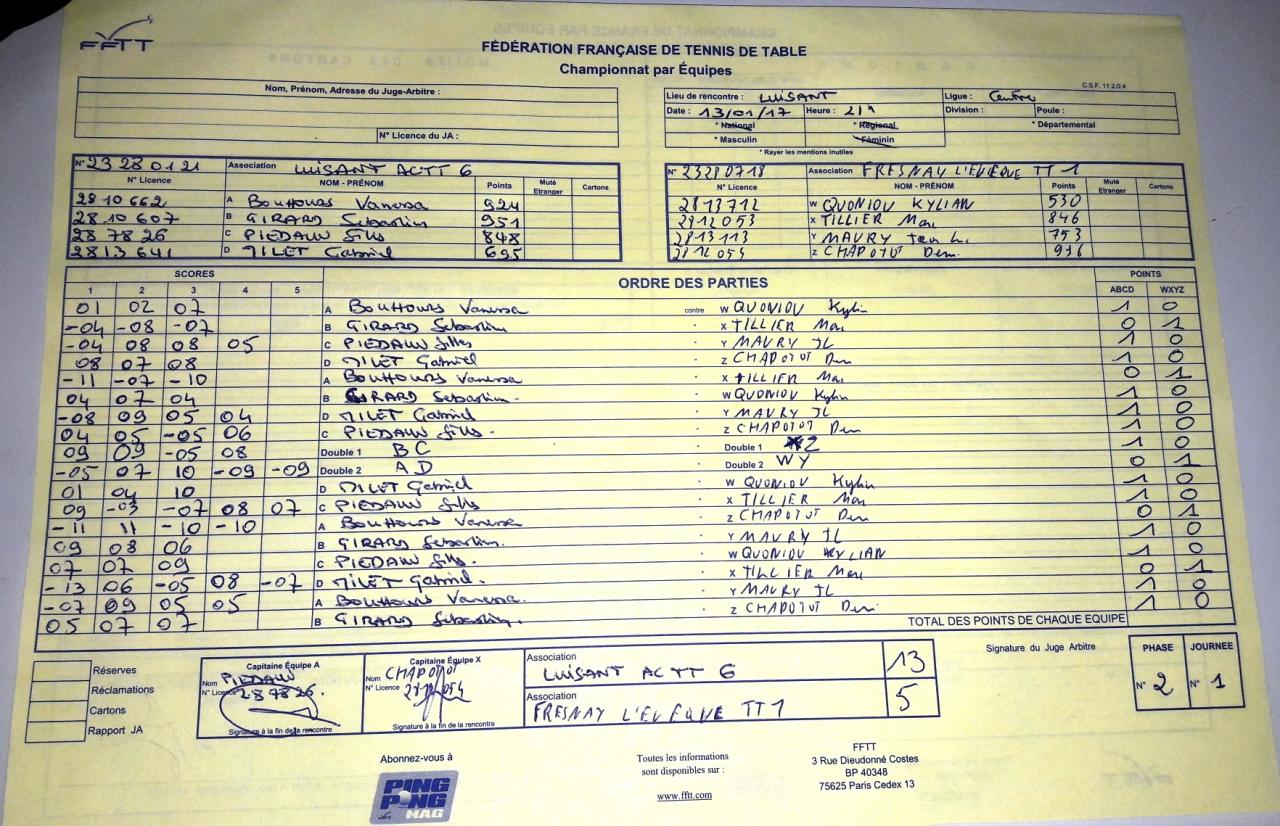 FFTT
FÉDÉRATION FRANÇAISE DE TENNIS DE TABLE
Championnat par Équipes
C.S.F. 11.2.0.4
Nom, Prénom, Adresse du Juge-Arbitre :
N° Licence du JA :
Lieu de rencontre : LUISANT Ligue : Centre
Date : 13/01/17 Heure : 21h Division : Poule :
* National * Régional * Départemental
* Masculin * Féminin
* Rayer les mentions inutiles
N° 23 28 01 21 Association LUISANT ACTT 6
N° Licence NOM - PRÉNOM Points Muté Etranger Cartons
28 10 662 A BOUHOURS Vanessa 524
28 10 607 B GIRARD Sebastien 951
28 78 26 C PIEDALU Gilles 848
28 13 641 D MILET Gabriel 695
N° 23280718 Association FRESNAY L'EVEQUE TT 1
N° Licence NOM - PRÉNOM Points Muté Etranger Cartons
2813712 W QUONIOU KYLIAN 530
2812053 X TILLIER Marc 846
2813113 Y MAURY 753
2812054 Z CHAPOTOT 936
SCORES ORDRE DES PARTIES POINTS
1 2 3 4 5 ABCD WXYZ
01 02 07 A BOUHOURS Vanessa contre W QUONIOU Kylian 1 0
-04 -08 -07 B GIRARD Sebastien X TILLIER Marc 0 1
-04 08 08 05 C PIEDALU Gilles Y MAURY JL 1 0
08 07 08 D MILET Gabriel Z CHAPOTOT 1 0
-11 -07 -10 A BOUHOURS Vanessa X TILLIER Marc 0 1
04 07 04 B GIRARD Sebastien W QUONIOU Kylian 1 0
-08 09 05 04 D MILET Gabriel Y MAURY JL 1 0
04 05 -05 06 C PIEDALU Gilles Z CHAPOTOT 1 0
09 09 -05 08 Double 1 BC Double 1 XZ 1 0
-05 07 10 -09 -09 Double 2 AD Double 2 WY 0 1
01 04 10 D MILET Gabriel W QUONIOU Kylian 1 0
09 -03 -07 08 07 C PIEDALU Gilles X TILLIER Marc 1 0
-11 11 -10 -10 A BOUHOURS Vanessa Z CHAPOTOT 0 1
09 08 06 B GIRARD Sebastien Y MAURY JL 1 0
07 07 09 C PIEDALU Gilles W QUONIOU KYLIAN 1 0
-13 06 -05 08 -07 D MILET Gabriel X TILLIER Marc 0 1
-07 09 05 05 A BOUHOURS Vanessa Y MAURY JL 1 0
05 07 07 B GIRARD Sebastien Z CHAPOTOT 1 0
TOTAL DES POINTS DE CHAQUE EQUIPE
Réserves
Réclamations
Cartons
Rapport JA
Capitaine Équipe A
Nom PIEDALU
N° Licence 28 78 26.
Signature à la fin de la rencontre
Capitaine Équipe X
Nom CHAPOTOT
N° Licence 2812054
Signature à la fin de la rencontre
Association
LUISANT ACTT 6 13
Association
FRESNAY L'EVEQUE TT 1 5
Signature du Juge Arbitre
PHASE JOURNEE
N° 2 N° 1
Abonnez-vous à
PING PONG MAG
Toutes les informations
sont disponibles sur :
www.fftt.com
FFTT
3 Rue Dieudonné Costes
BP 40348
75625 Paris Cedex 13